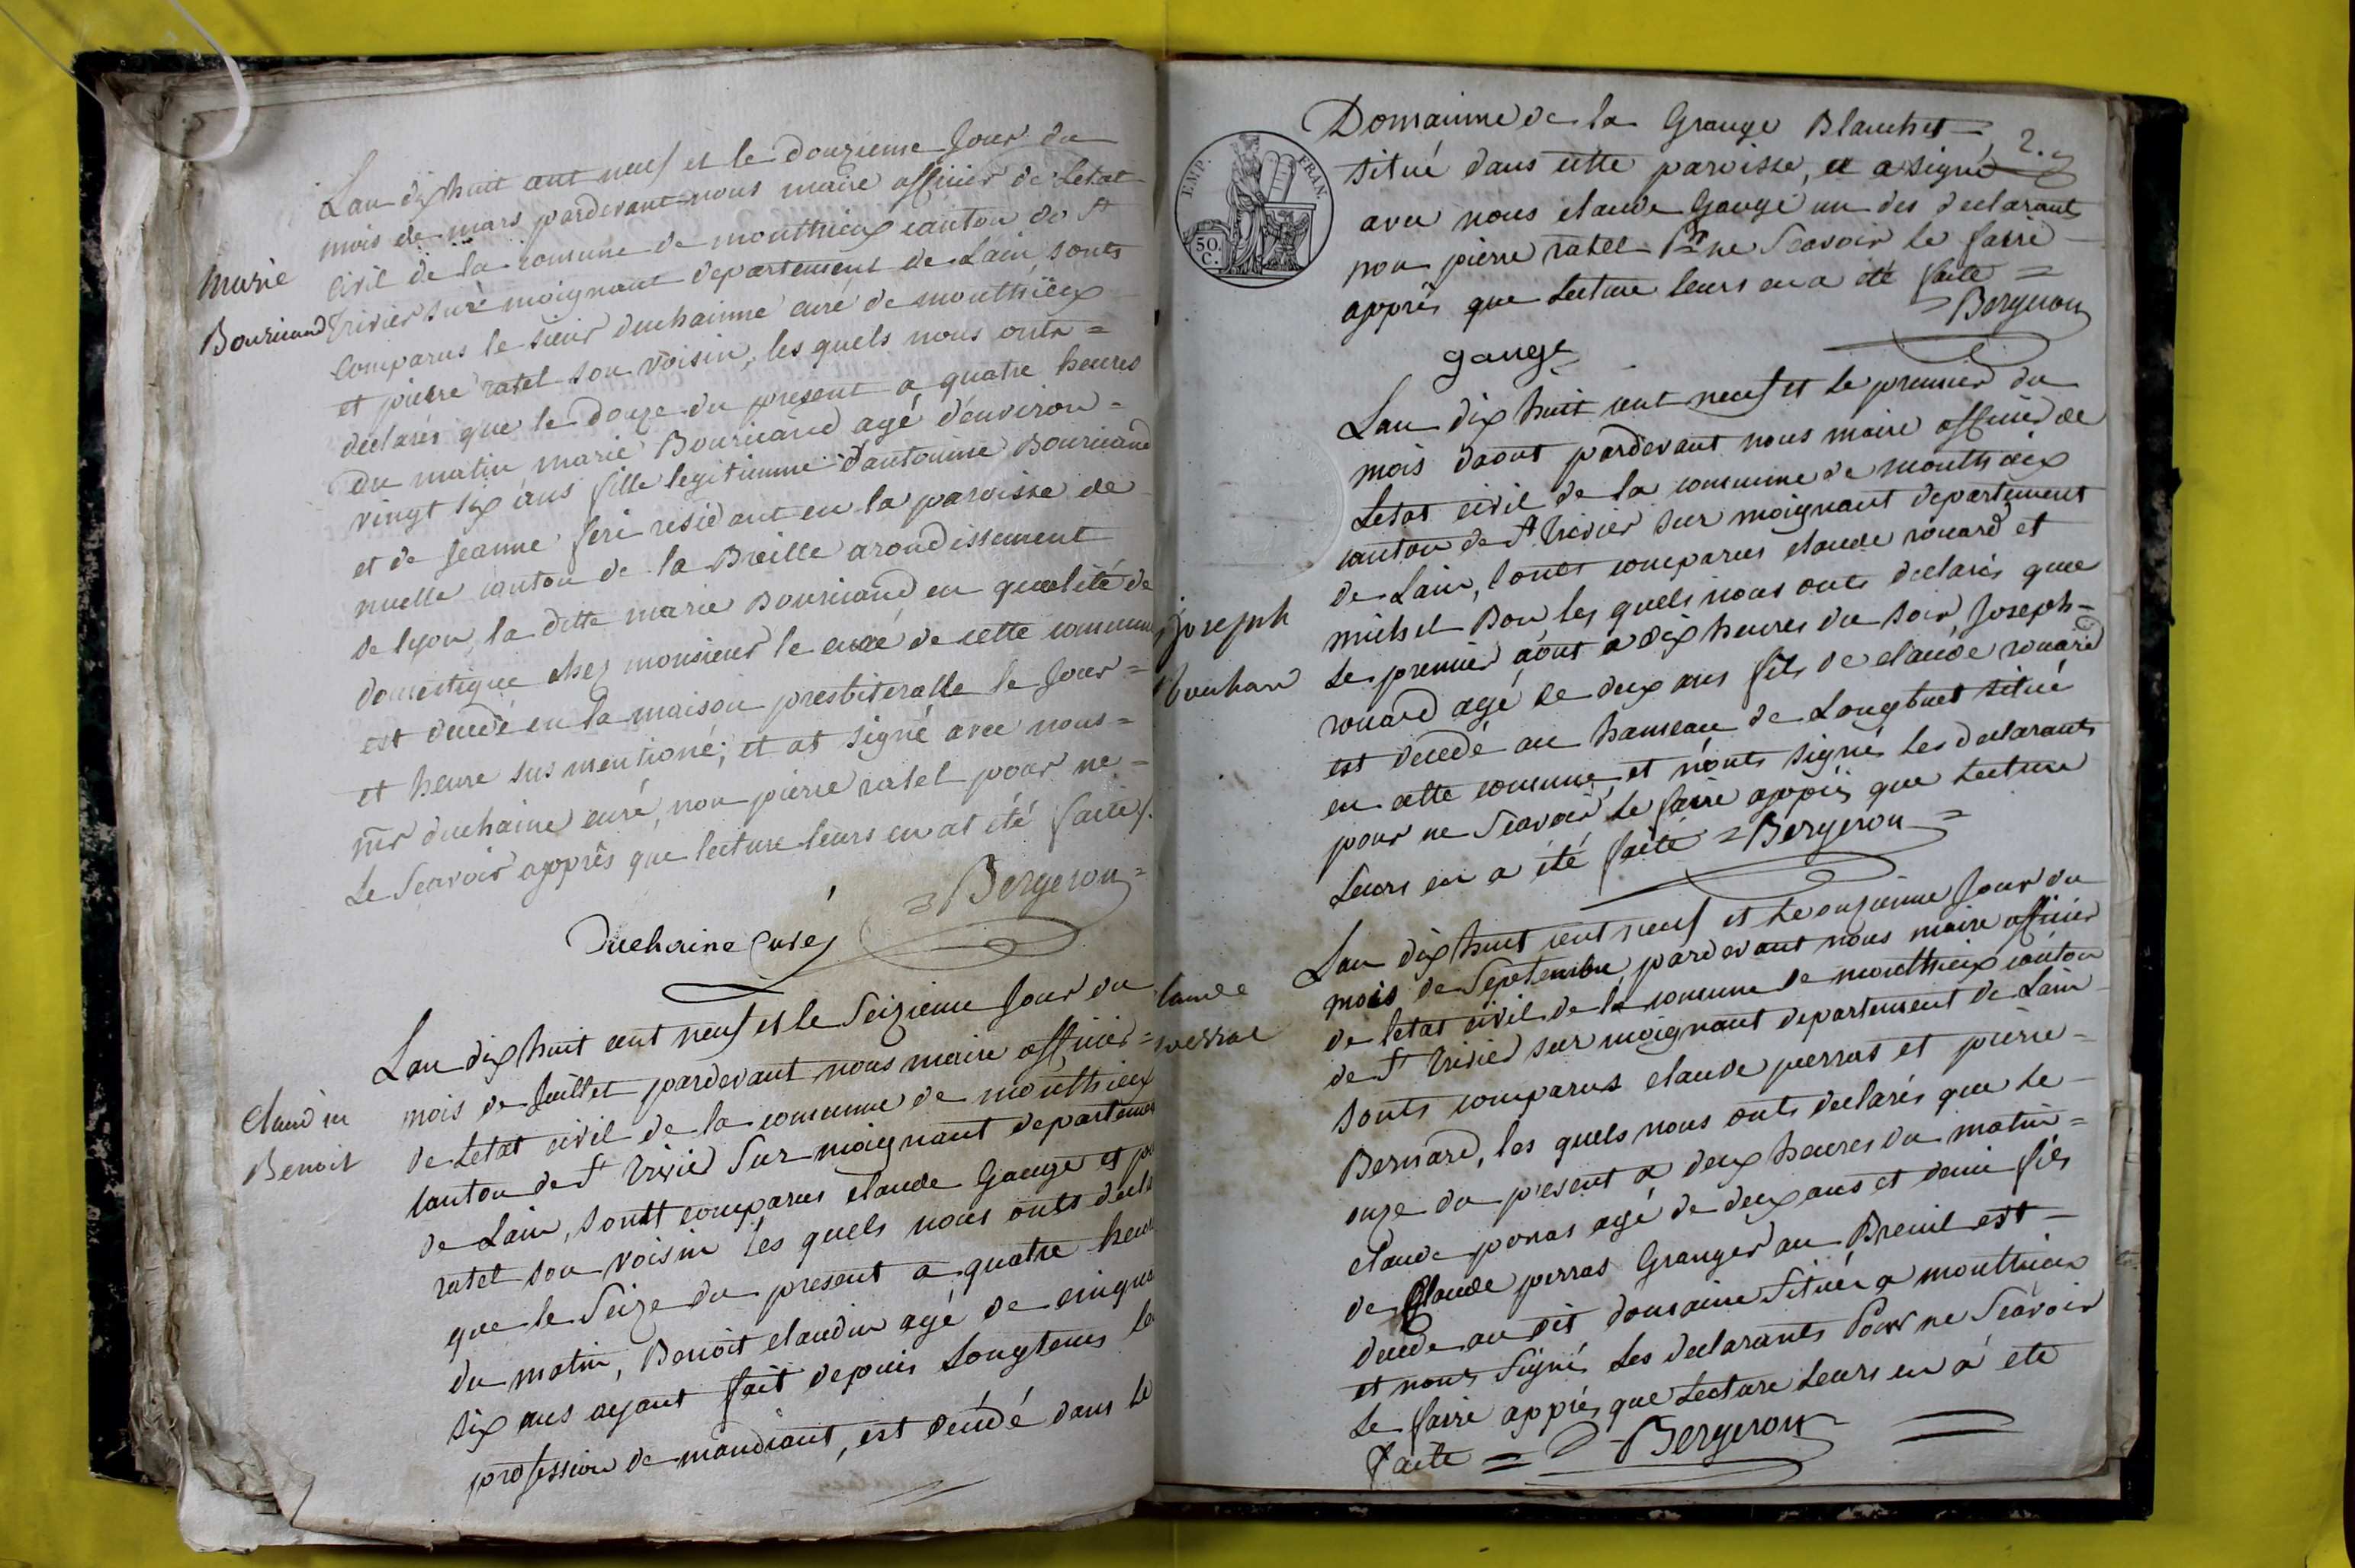 Marie
Bouricand
Lan dix huit cent neuf et le douzieme Jour du
mois de mars pardevant nous maire officier de Letat
Civil de la comune de monthieux canton de St
Trivier sur moignant departement de Lain, sonts
Comparus le sieur duchainne curé de monthieux
et pierre ratel son voisin, les quels nous onts =
declarés que le douze du present a quatre heures
du matin marie Bouricand agé d'environ =
vingt six ans fille legitimme d'antoinne Bouricand
et de Jeanne feri residant en la paroisse de
nuelle canton de la Breille arondissement
de lyon, la ditte marie Bouricand en qualité de
domestique chez monsieur le curé de cette commune
est decedé en la maison presbiteralle le Jour =
et heure sus mentioné; et at signé avec nous =
mr duchaine curé, non pierre ratel pour ne =
Le Scavoir apprês que lecture leurs en at été faite/.
= Bergeron =
Duchaine Curé
Claudin
Benoit
Lan dix huit cent neuf et le Seizieme Jour du
mois de Juillet pardevant nous maire officier =
de Letat civil de la commune de monthieux
Canton de St Trivier Sur moignant departement
de Lain, sontt comparus claude Gauge et
ratel son voisin les quels nous onts
que le Seize du present a quatre
du matin, Benoit claudin agé de
six ans ayant fait depuis Longtems
profession de mandiant, est décédé dans le
EMP. FRAN.
50. C.
2.
Domainne de la Grange Blanchet
situé dans cette paroisse, et a signé
avec nous claude Gauge un des declarants
non pierre ratel Pr ne Scavoir le faire
apprês que Lecture leurs en a été faite =
= Bergeron
gauge
Joseph
Rouhard
Lan dix huit cent neuf et le premier du
mois daout pardevant nous maire officier de
Letat civil de la commune de monthieux
canton de St Trivier sur moignant departement
de Lain, Sonts comparus claude rouard et
michel Bon les quels nous onts declarés que
Le premier aout a dix heures du soir Joseph =
rouard agé de deux ans fils de claude rouard
est decedé au hameau de situé
en cette commune, et nonts signés les declarants
pour ne Scavoir Le faire apprês que Lecture
Leurs en a été faite = Bergeron =
claude
perras
Lan dix huit cent neuf et Le onzieme Jour du
mois de Septembre pardevant nous maire officier
de letat civil de la commune de monthieux canton
de St Trivier sur moignant departement de Lain
Sonts comparus claude perras et pierre =
Bernard, les quels nous onts declarés que le
onze du present a deux heures du matin =
claude peras agé de deux ans et demi fils
de Claude perras Granger au Breuil est =
decedé au dit domaine Situér a monthieux
et nonts Signés Les declarants Pour ne Scavoir
Le faire apprês que Lecture Leurs en a eté
faite = Bergeron